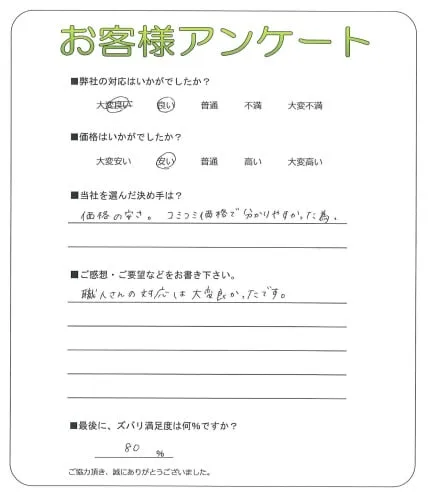 お客様アンケート
■弊社の対応はいかがでしたか？
大変良い 良い 普通 不満 大変不満
■価格はいかがでしたか？
大変安い 安い 普通 高い 大変高い
■当社を選んだ決め手は？
価格の安さ。コミコミ価格で分かりやすかった為。
■ご感想・ご要望などをお書き下さい。
職人さんの対応は大変良かったです。
■最後に、ズバリ満足度は何%ですか？
80 %
ご協力頂き、誠にありがとうございました。